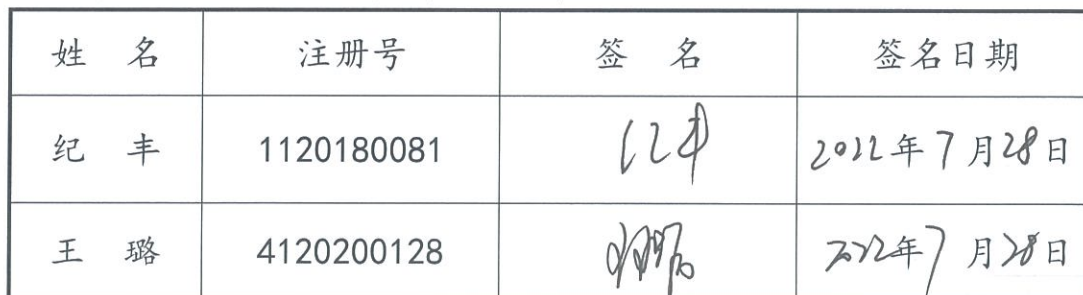 姓 名 注册号 签 名 签名日期
纪 丰 1120180081 纪丰 2022年7月28日
王 璐 4120200128 2022年7月28日